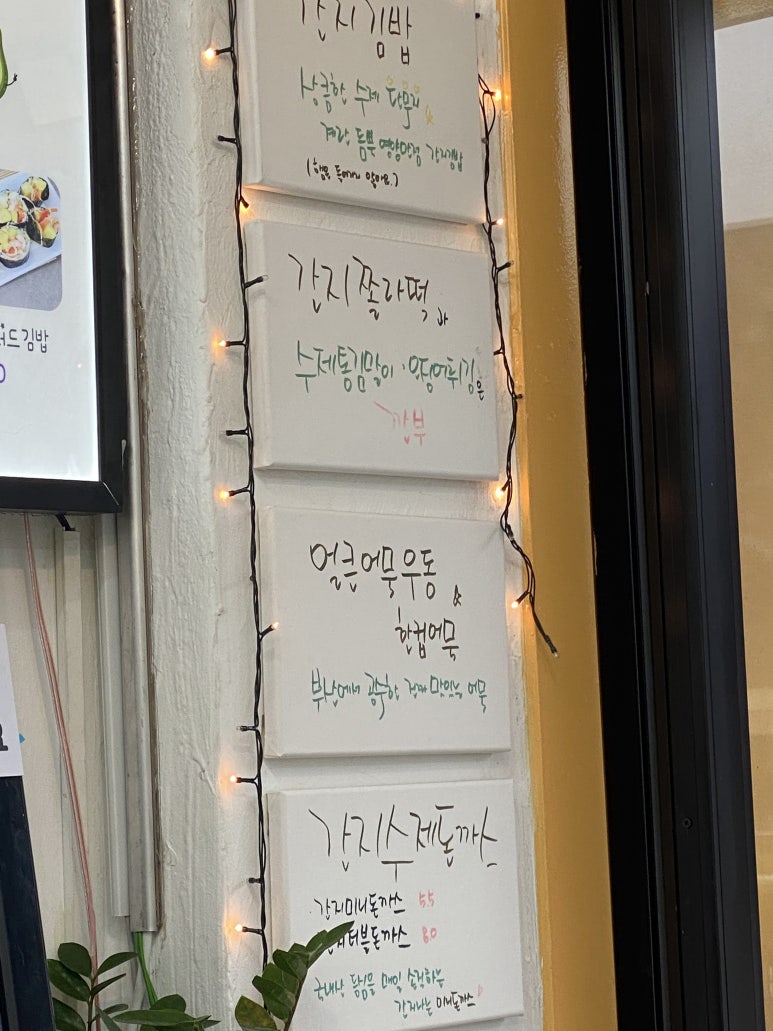 간지김밥
상큼한 수제 단무지
계란 듬뿍 영양만점 간지김밥
(햄은 독에서 않아요.)
드김밥
간지쫄라떡과
수제통김말이·오징어튀김은
깐부
얼큰어묵우동
&
한컵어묵
부산에서 공수한 진짜 맛있는 어묵
간지수제돈까스
간지미니돈까스 5.5
더블돈까스 8.0
국내산 등심을 매일 손질하는
간지나는 미니돈까스